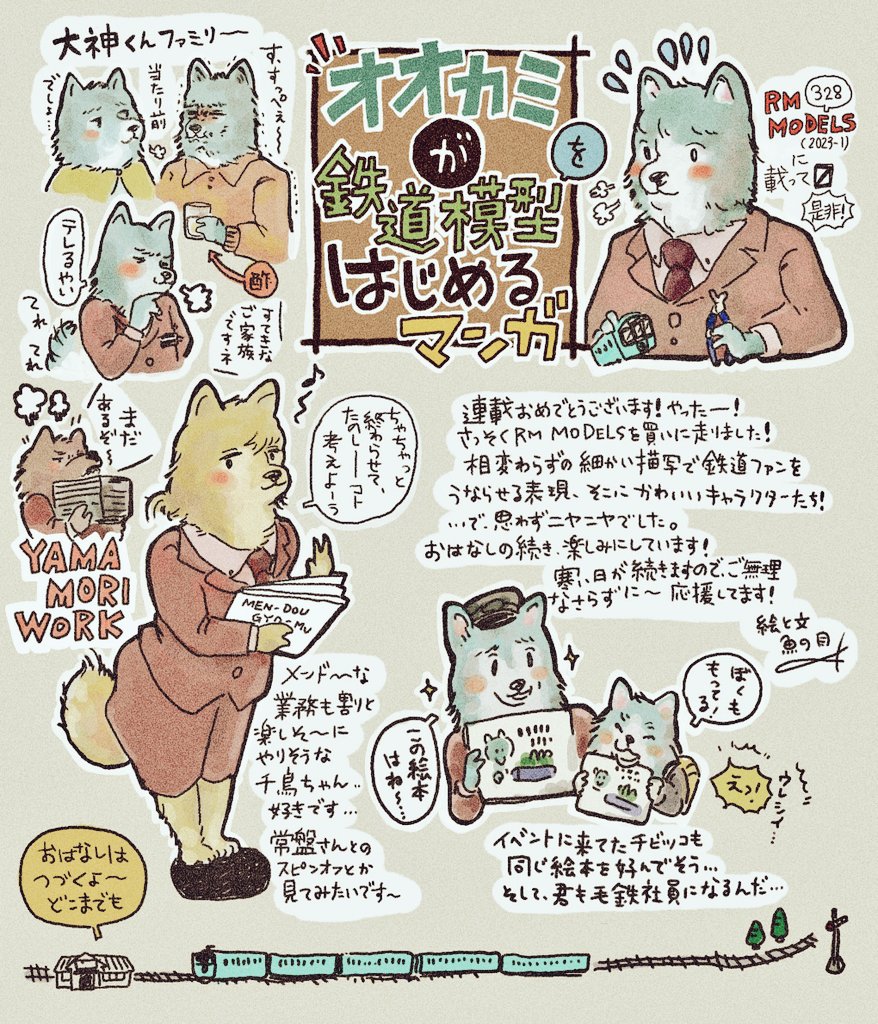 大神くんファミリ〜
す、すっぺえ〜…
当たり前
でしょ…
酢
テレるやい
てれ
てれ
すてきな
ご家族
ですネ
オオカミ
が
鉄道模型
を
はじめる
マンガ
328
RM
MODELS
(2023-1)
に
載って〼
是非!
まだ
あるぞ〜
YAMA
MORI
WORK
ちゃちゃっと
終わらせて、
たのしーコト
考えよーう
MEN-DOU
GYO-MU
メンド〜な
業務も割りと
楽しそ〜に
やりそうな
千鳥ちゃん…
好きです…
常盤さんとの
スピンオフとか
見てみたいです〜
連載おめでとうございます!やったー!
さっそくRM MODELSを買いに走りました!
相変わらずの細かい描写で鉄道ファンを
うならせる表現、そこにかわいいキャラクターたち!
…で、思わずニヤニヤでした。
おはなしの続き、楽しみにしています!
寒い日が続きますので、ご無理
なさらずに〜 応援してます!
絵と文
魚の目
この絵本
はね〜…
ぼくも
もってる!
えっ!
ウレシイ…
イベントに来てたチビッコも
同じ絵本を好んでそう…
そして、君も毛鉄社員になるんだ…
おはなしは
つづくよ〜
どこまでも